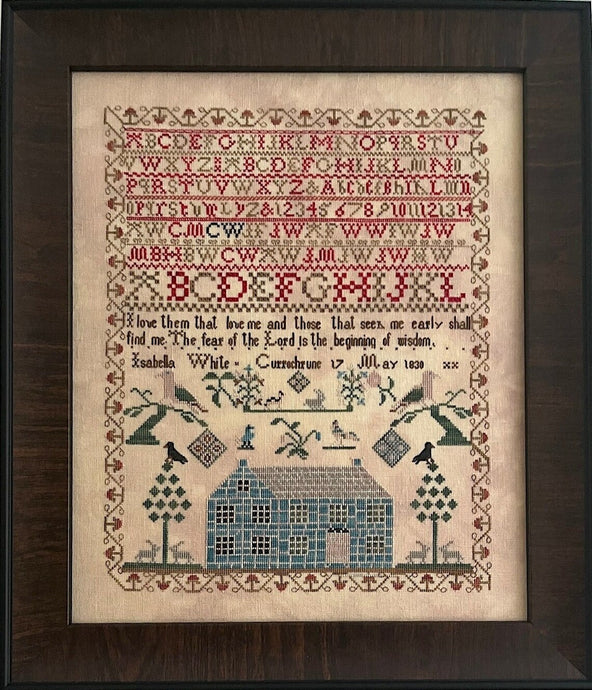 ABCDEFGHIJKLMNOPQRSTU
VWXYZ ABCDEFGHIJKLMNO
PQRSTUVWXYZ&
z&1234567891011121314
CM CW JW WW JW
MBH BW CW JM JW BW
ABCDEFGHIJKL
I love them that love me and those that seek me early shall
find me The fear of the Lord is the beginning of wisdom.
Isabella White Currochrune 17 May 1830 xx